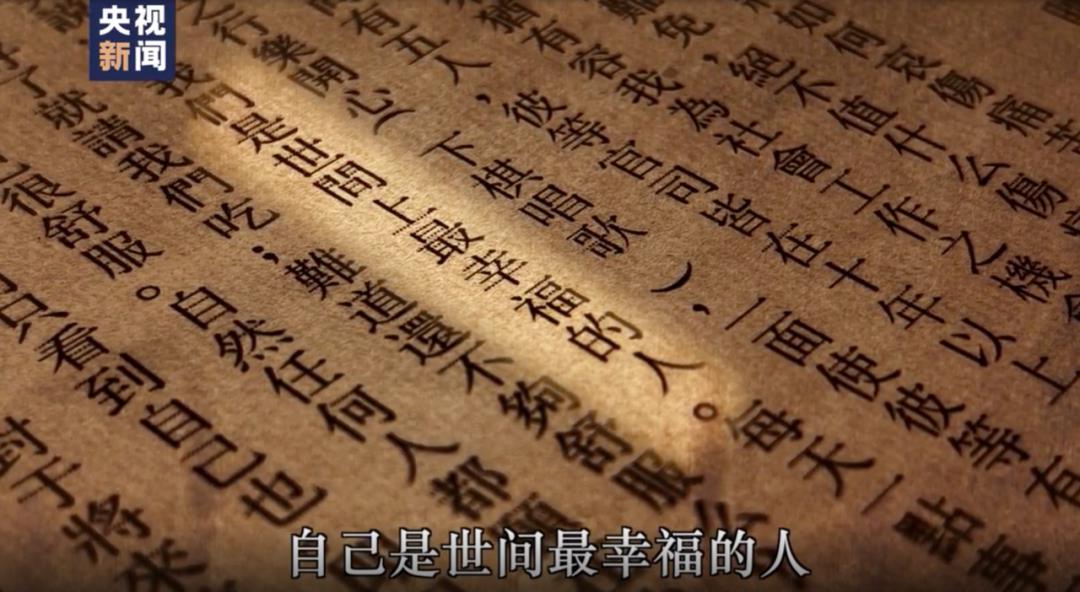 央视
新闻
如何哀傷痛苦
難免，絕不值什么傷
猶有容我為社會工作之機會
有五人，彼等官司皆在十年以上
之行樂開心（下棋唱歌），一面使彼等有
我們是世間上最幸福的人。每天一點事
了就請我們吃；難道還不夠舒服么
很舒服。自然任何人都願
只看到自己也
對于將來
自己是世间最幸福的人